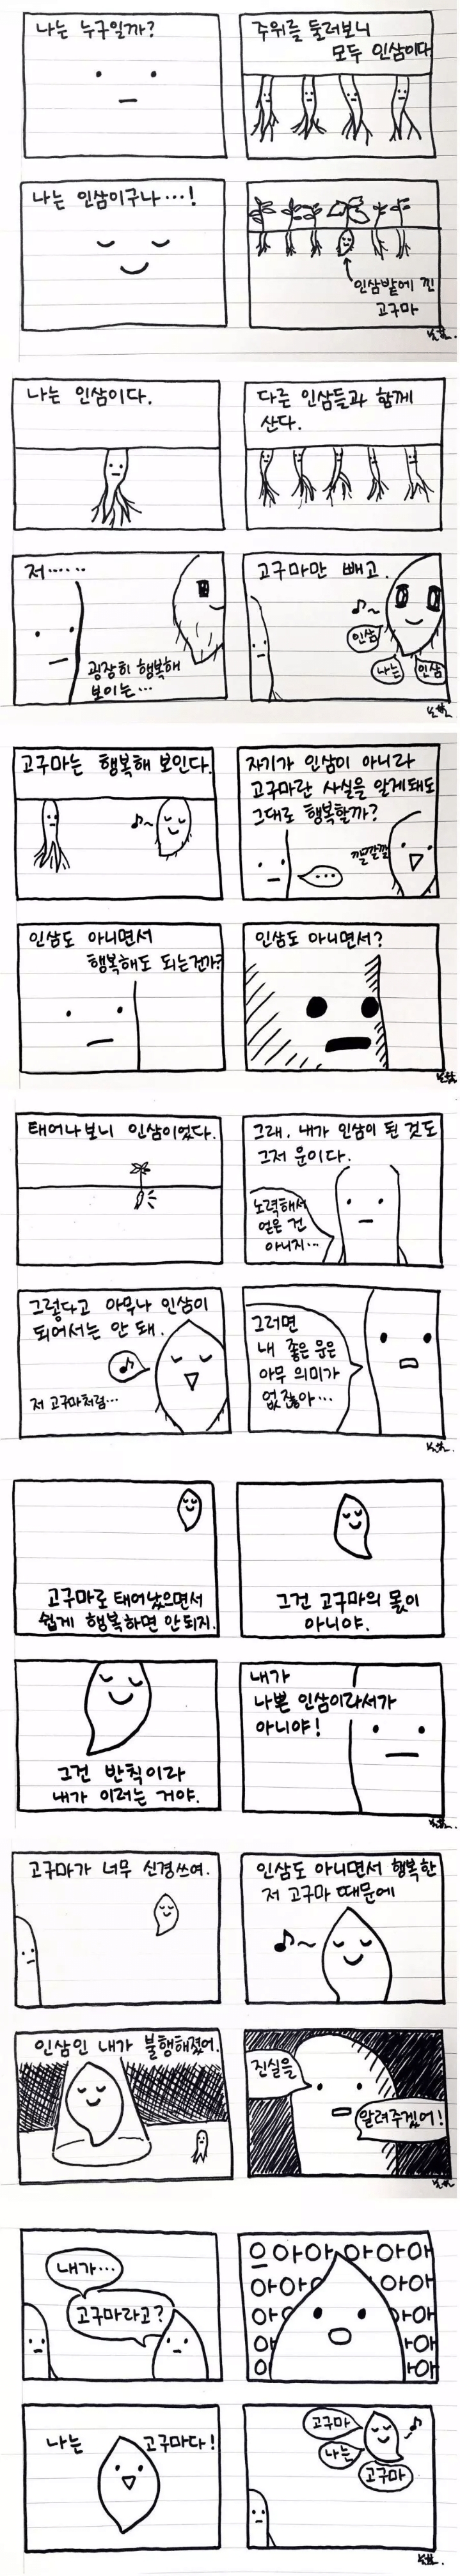 나는 누구일까?
주위를 둘러보니
모두 인삼이다
나는 인삼이구나…!
인삼밭에 낀
고구마
나는 인삼이다.
다른 인삼들과 함께
산다.
저……
굉장히 행복해
보이는…
고구마만 빼고.
♪~
인삼
나는
인삼
고구마는 행복해 보인다.
♪~
자기가 인삼이 아니라
고구마란 사실을 알게돼도
그대로 행복할까?
…
깔깔깔
인삼도 아니면서
행복해도 되는건가?
인삼도 아니면서?
태어나보니 인삼이었다.
그래, 내가 인삼이 된 것도
그저 운이다.
노력해서
얻은 건
아니지…
그렇다고 아무나 인삼이
되어서는 안 돼.
♪
저 고구마처럼…
그러면
내 좋은 운은
아무 의미가
없잖아…
고구마로 태어났으면서
쉽게 행복하면 안되지.
그건 고구마의 몫이
아니야.
그건 반칙이라
내가 이러는 거야.
내가
나쁜 인삼이라서가
아니야!
고구마가 너무 신경쓰여.
인삼도 아니면서 행복한
저 고구마 때문에
♪~
인삼인 내가 불행해졌어.
진실을
알려주겠어!
내가…
고구마라고?
으아아아아아아
아아아아아
아아아아
아아아
아아아
나는 고구마다!
고구마
♪
나는
고구마